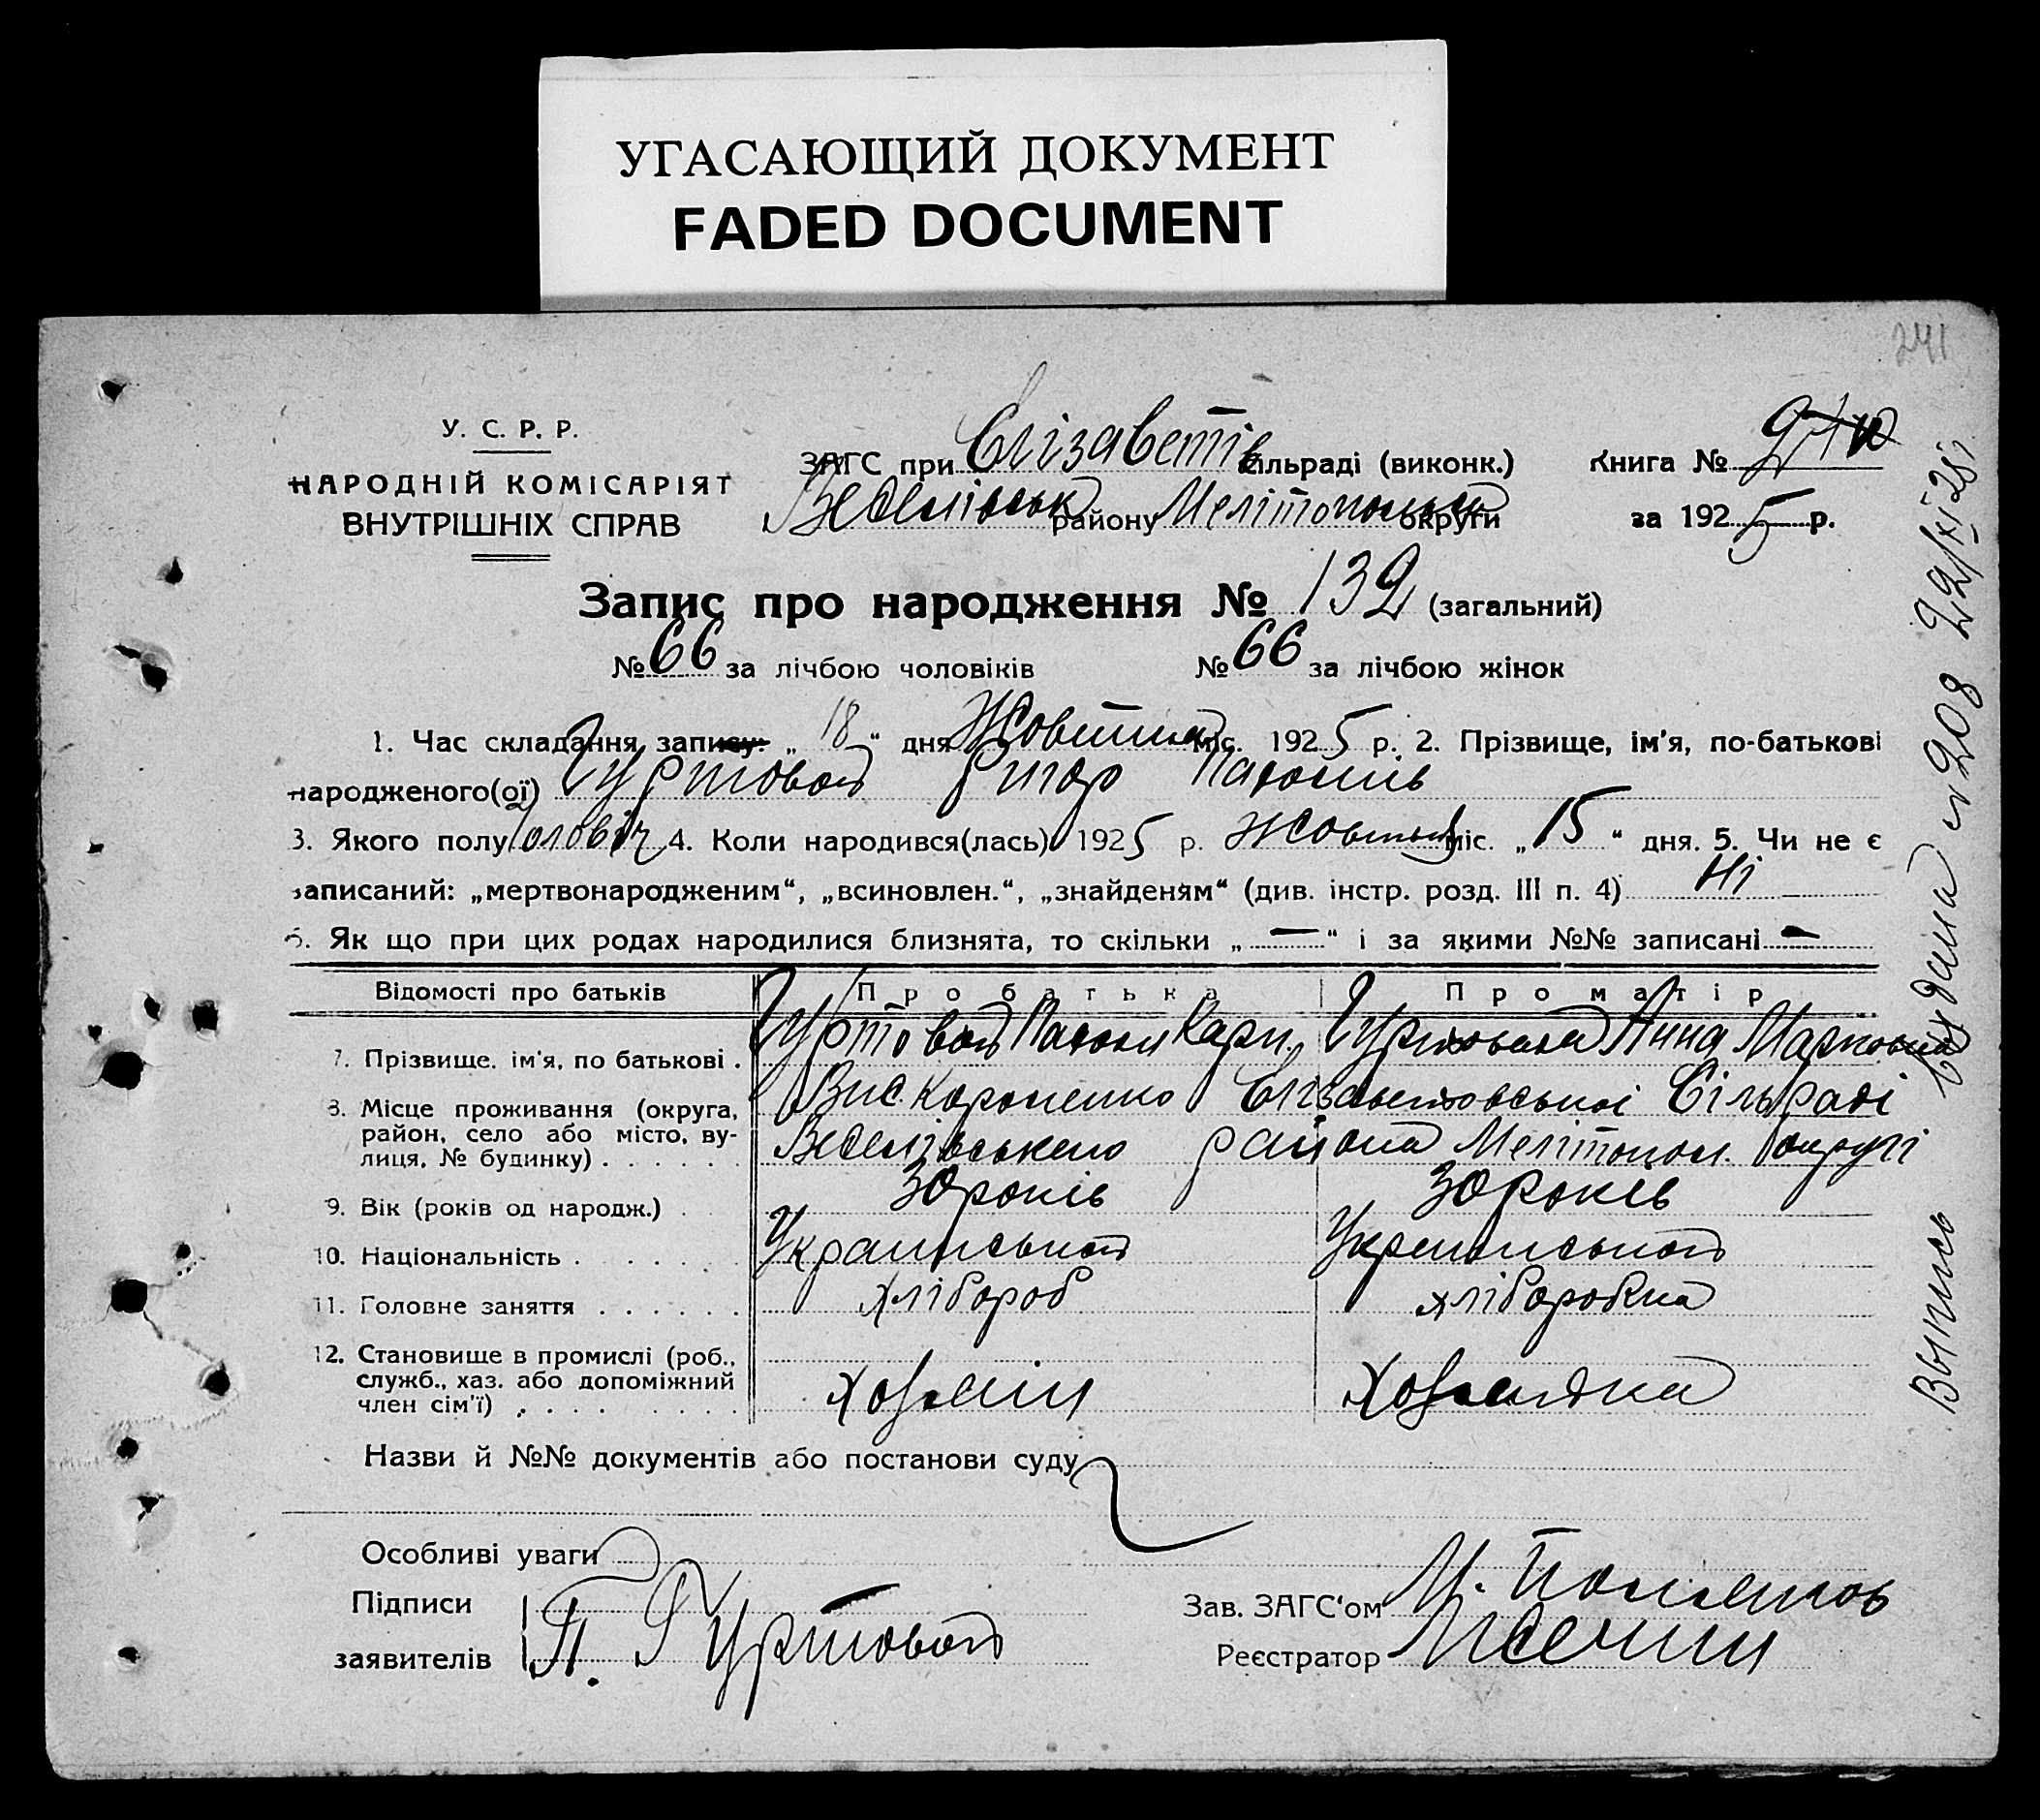 УГАСАЮЩИЙ ДОКУМЕНТ
FADED DOCUMENT
241
У. С. Р. Р.
НАРОДНІЙ КОМІСАРІЯТ
ВНУТРІШНІХ СПРАВ
ЗАГС при Єлізаветів сільраді (виконк.)
Веселівськ району Мелітопольськ округи
Книга №
за 1925 р.
Запис про народження № 132 (загальний)
№ 66 за лічбою чоловіків № 66 за лічбою жінок
1. Час складання запису: „ 18 “ дня Жовтня міс. 1925 р. 2. Прізвище, ім'я, по-батькові
народженого(ої) Гуртовой
3. Якого полу Чоловіч 4. Коли народився(лась) 1925 р. Жовтня міс. „ 15 “ дня. 5. Чи не є
записаний: „мертвонародженим“, „всиновлен.“, „знайденям“ (див. інстр. розд. III п. 4) Ні
6. Як що при цих родах народилися близнята, то скільки „ — “ і за якими №№ записані —
Відомості про батьків Про батька Про матір
7. Прізвище, ім'я, по батькові . Гуртовой Карп. Гуртовая Анна Марковна
8. Місце проживання (округа,
район, село або місто, ву-
лиця, № будинку) . . . . . .
Єлізаветовської Сільраді
Веселівського района Мелітопол. округі
9. Вік (років од народж.) . 30 років 30 років
10. Національність . . . . . . Украинськой Украинськой
11. Головне заняття . . . . . . хлібороб хліборобка
12. Становище в промислі (роб.,
служб., хаз. або допоміжний
член сім'ї) . . . . . . . .
Хозяін Хозяйка
Назви й №№ документів або постанови суду
Особливі уваги
Підписи
заявителів
П. Гуртовой
Зав. ЗАГС'ом М.
Реєстратор
Выпись выдана № 208 22/XI 28г